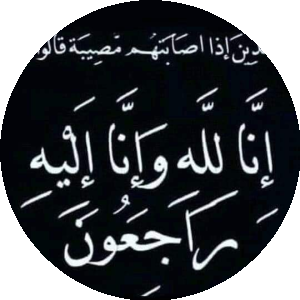 ـذين إذا اصابتهم مصيبة قالو
إِنَّا لِلَّهِ وَإِنَّا إِلَيْهِ
رَاجِعُونَ